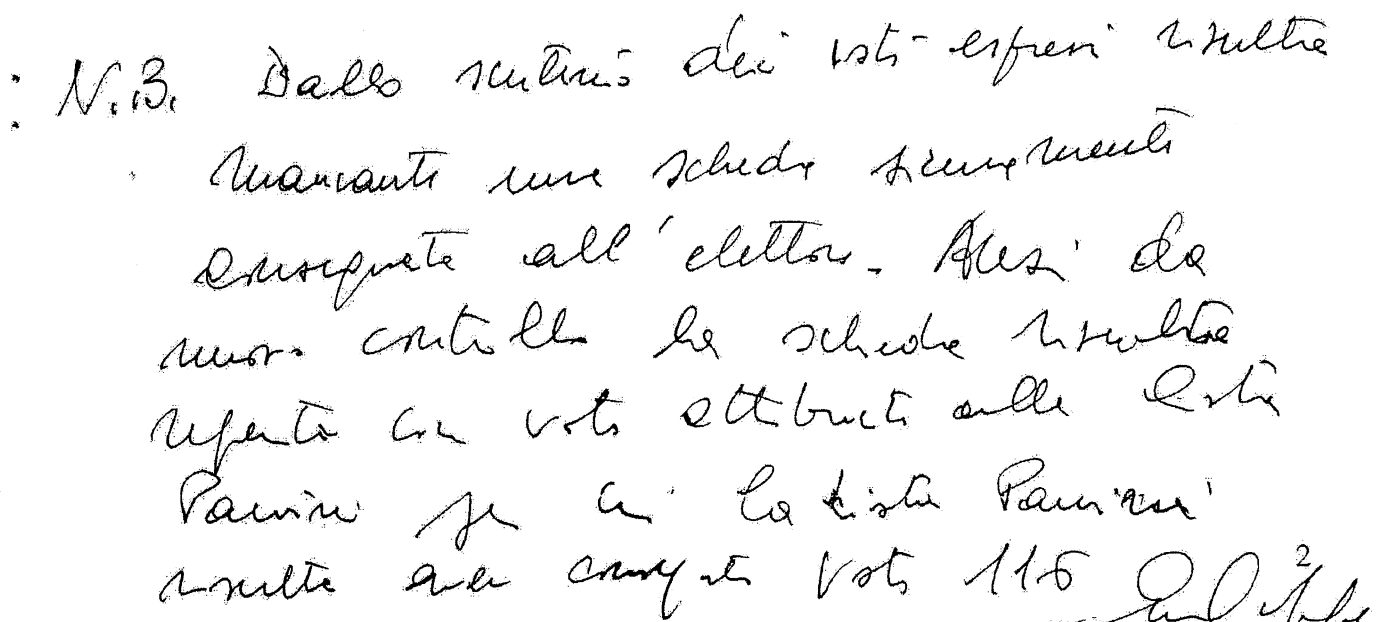 : N.B. Dallo scrutinio dei voti espressi risulta
mancante una scheda sicuramente
consegnata all'elettore. Alesi da
nuovo controllo la scheda risulta
reperita con voto attribuito alla lista
per cui la lista
risulta aver conseguito voti 116